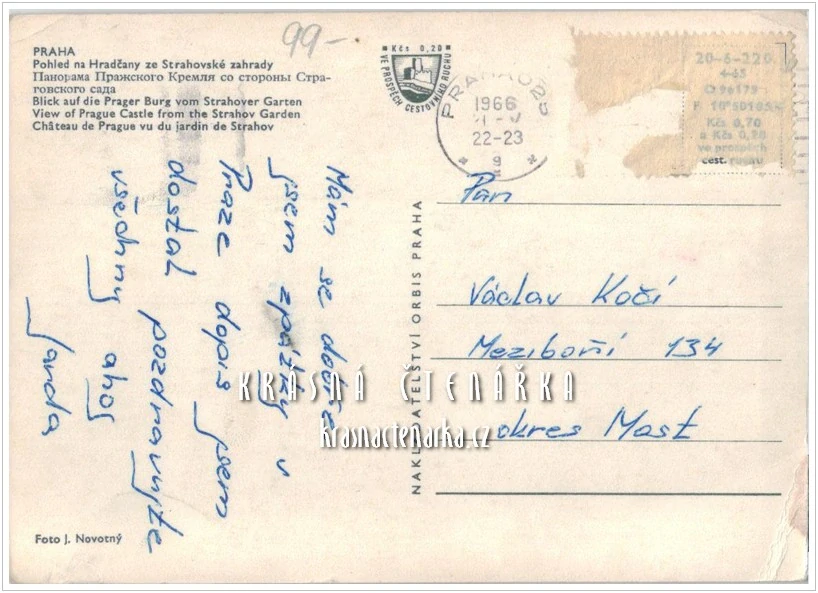 99-
PRAHA
Pohled na Hradčany ze Strahovské zahrady
Панорама Пражского Кремля со стороны Стра-
говского сада
Blick auf die Prager Burg vom Strahover Garten
View of Prague Castle from the Strahov Garden
Château de Prague vu du jardin de Strahov
Kčs 0,20
VE PROSPĚCH CESTOVNÍHO RUCHU
PRAHA 025
1966
22-23
9
20-6-220
4-65
Kčs 0,70
a Kčs 0,20
ve prospěch
cest. ruchu
Mám se dobře
jsem zpátky v
Praze dopis jsem
dostal pozdravujte
všechny ahoj
Janda
NAKLADATELSTVÍ ORBIS PRAHA
Pan
Václav Kočí
Meziboří 134
okres Most
KRÁSNÁ ČTENÁŘKA
krasnactenarka.cz
Foto J. Novotný